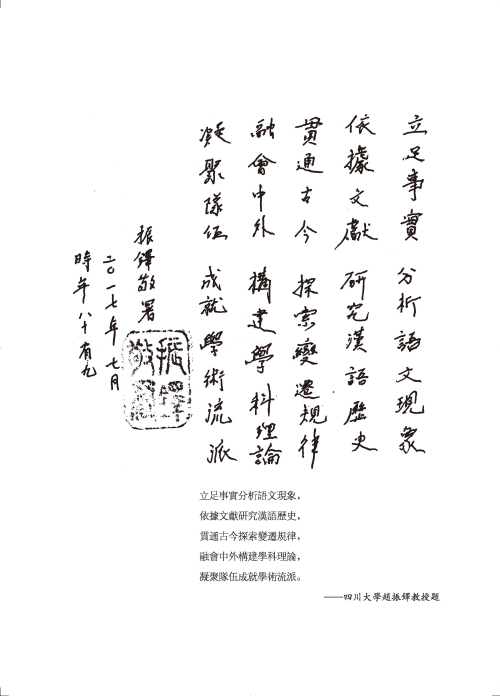 立足事實 分析語文現象
依據文獻 研究漢語歷史
貫通古今 探索變遷規律
融會中外 構建學科理論
凝聚隊伍 成就學術流派
振鐸敬署
二〇一七年七月
時年八十有九
振鐸敬署
立足事實分析語文現象，
依據文獻研究漢語歷史，
貫通古今探索變遷規律，
融會中外構建學科理論，
凝聚隊伍成就學術流派。
——四川大學趙振鐸教授題